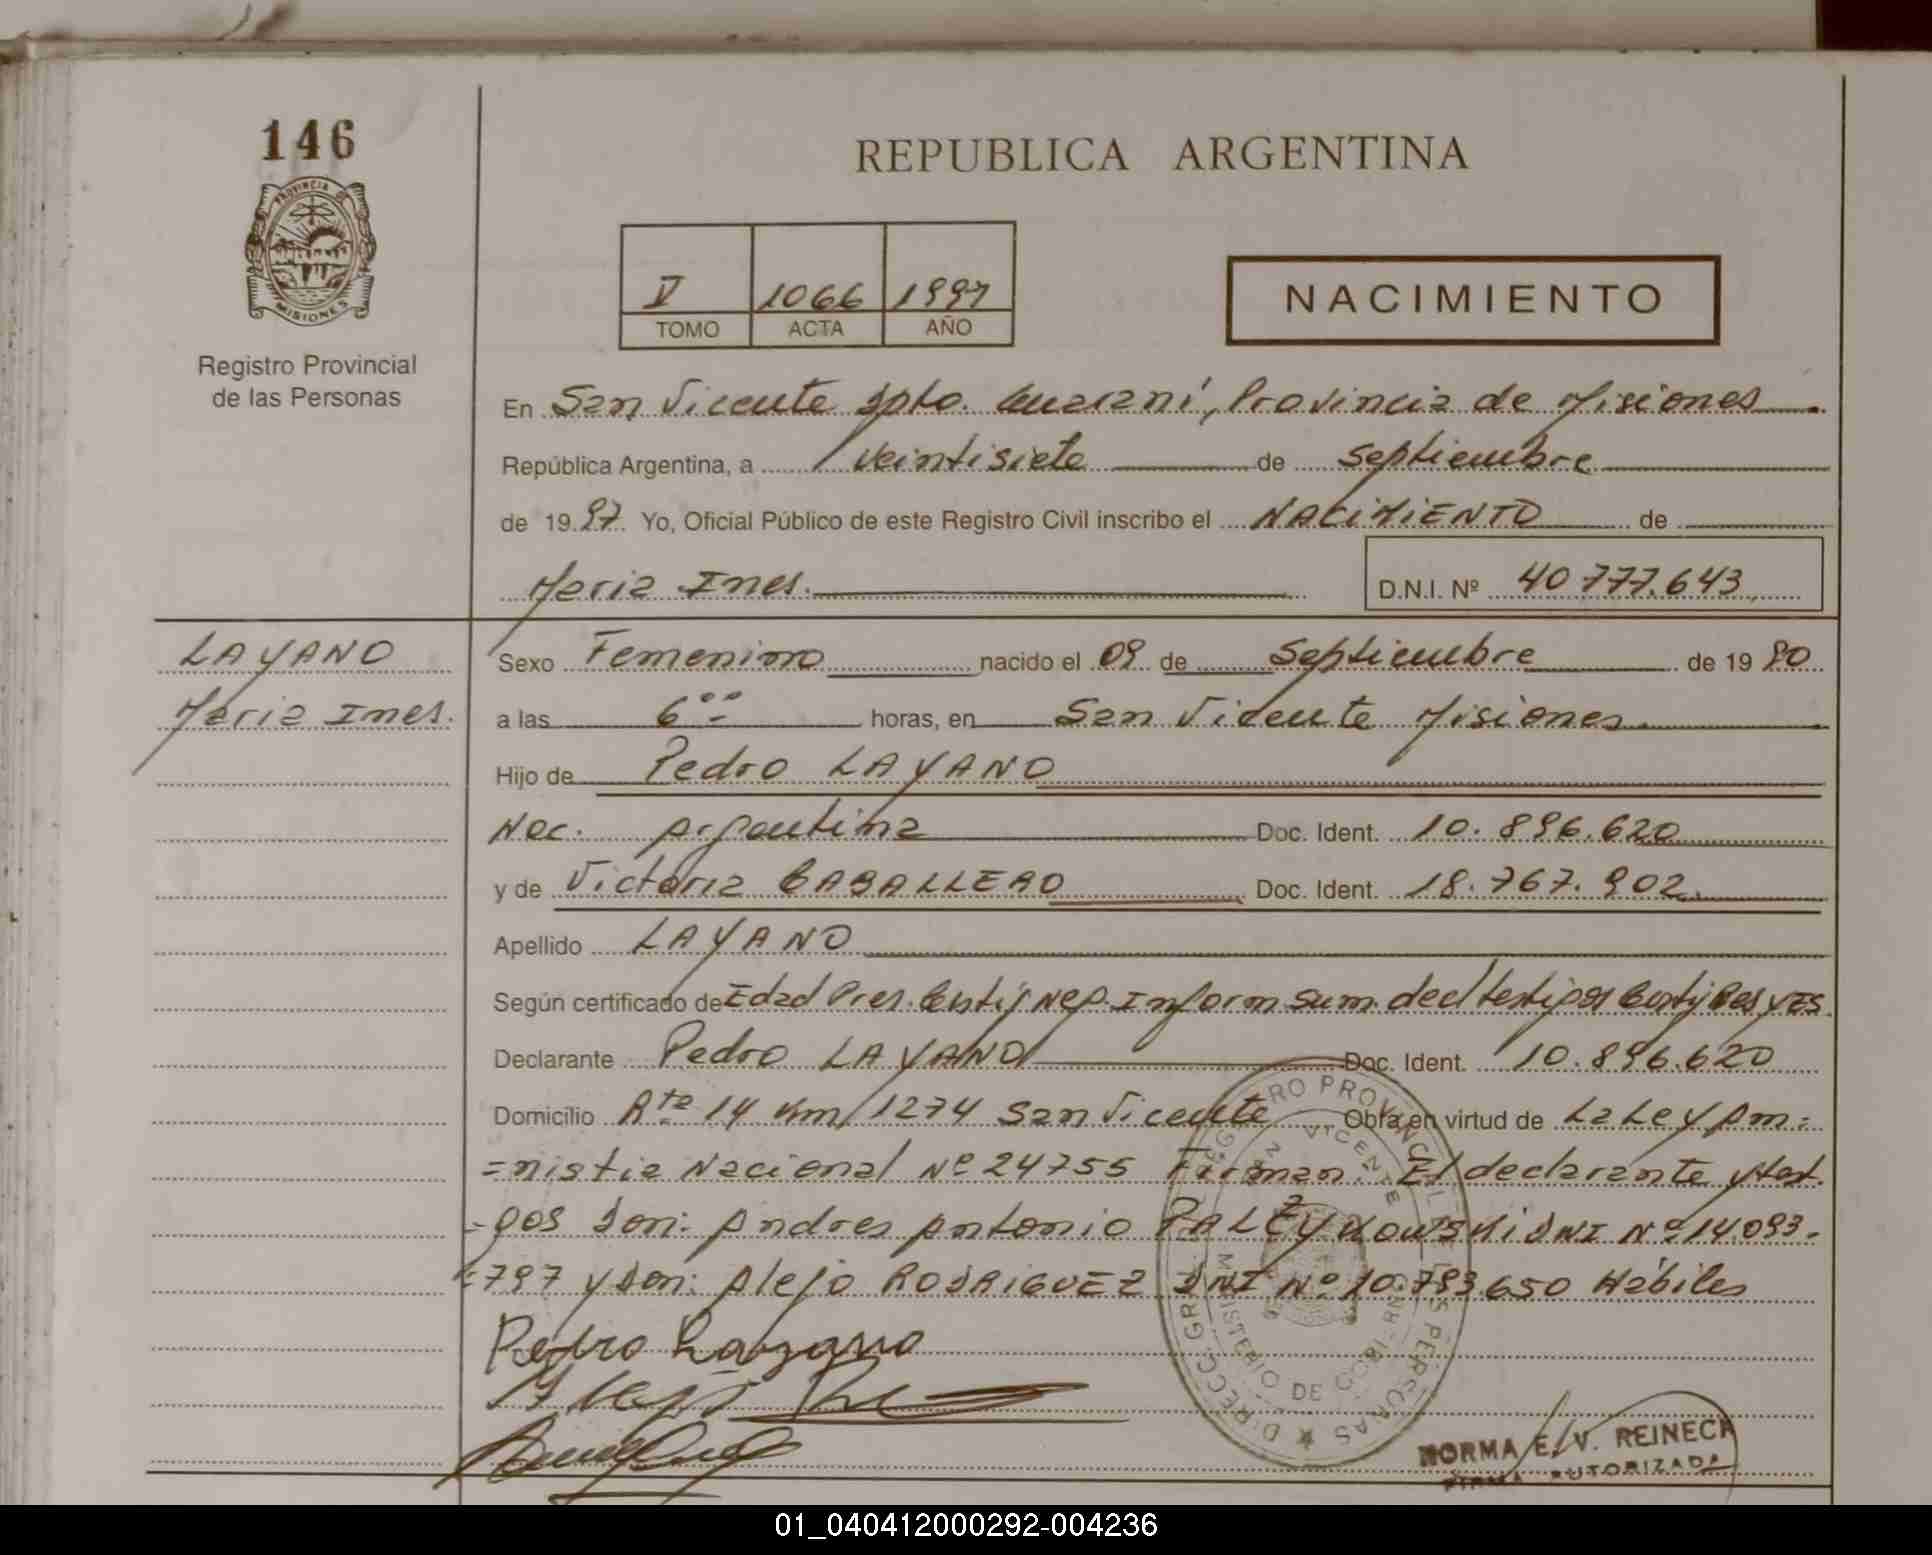 146
PROVINCIA DE
MISIONES
Registro Provincial
de las Personas
REPUBLICA ARGENTINA
V 1066 1997
TOMO ACTA AÑO
NACIMIENTO
En San Vicente Dpto. Guaraní, Provincia de Misiones
República Argentina, a veintisiete de septiembre
de 1997. Yo, Oficial Público de este Registro Civil inscribo el NACIMIENTO de
Maria Ines. D.N.I. Nº 40.777.643
LAYANO
Maria Ines.
Sexo Femenino nacido el 09 de Septiembre de 1990
a las 6°° horas, en San Vicente Misiones.
Hijo de Pedro LAYANO
Nac. Argentina Doc. Ident. 10.896.620
y de Victoria CABALLERO Doc. Ident. 18.767.902.
Apellido LAYANO
Según certificado de Edad Pres. Certif Neg. Inform sum. decl testigos Certif
Declarante Pedro LAYANO Doc. Ident. 10.896.620
Domicilio Rta 14 Km 1274 San Vicente Obra en virtud de La Ley Am=
=nistia Nacional Nº 24755 Firman: El declarante y test.
-gos Don: Andres Antonio DNI Nº 14.093-
=797 y Don: Alejo RODRIGUEZ DNI Nº 10.793.650 Hábiles
Pedro Layano
DIRECC. GRAL. REGISTRO PROVINCIAL DE LAS PERSONAS
SAN VICENTE
MINISTERIO DE GOBIERNO
NORMA E. V. REINECK
FIRMA AUTORIZADA
01_040412000292-004236